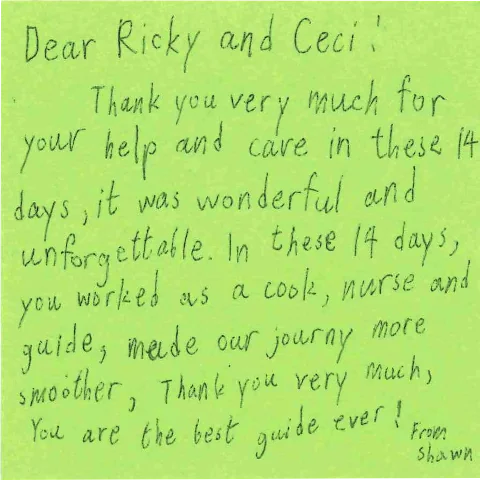 Dear Ricky and Ceci!
Thank you very much for
your help and care in these 14
days, it was wonderful and
unforgettable. In these 14 days,
you worked as a cook, nurse and
guide, made our journy more
smoother, Thank you very much,
You are the best guide ever!
From
Shawn